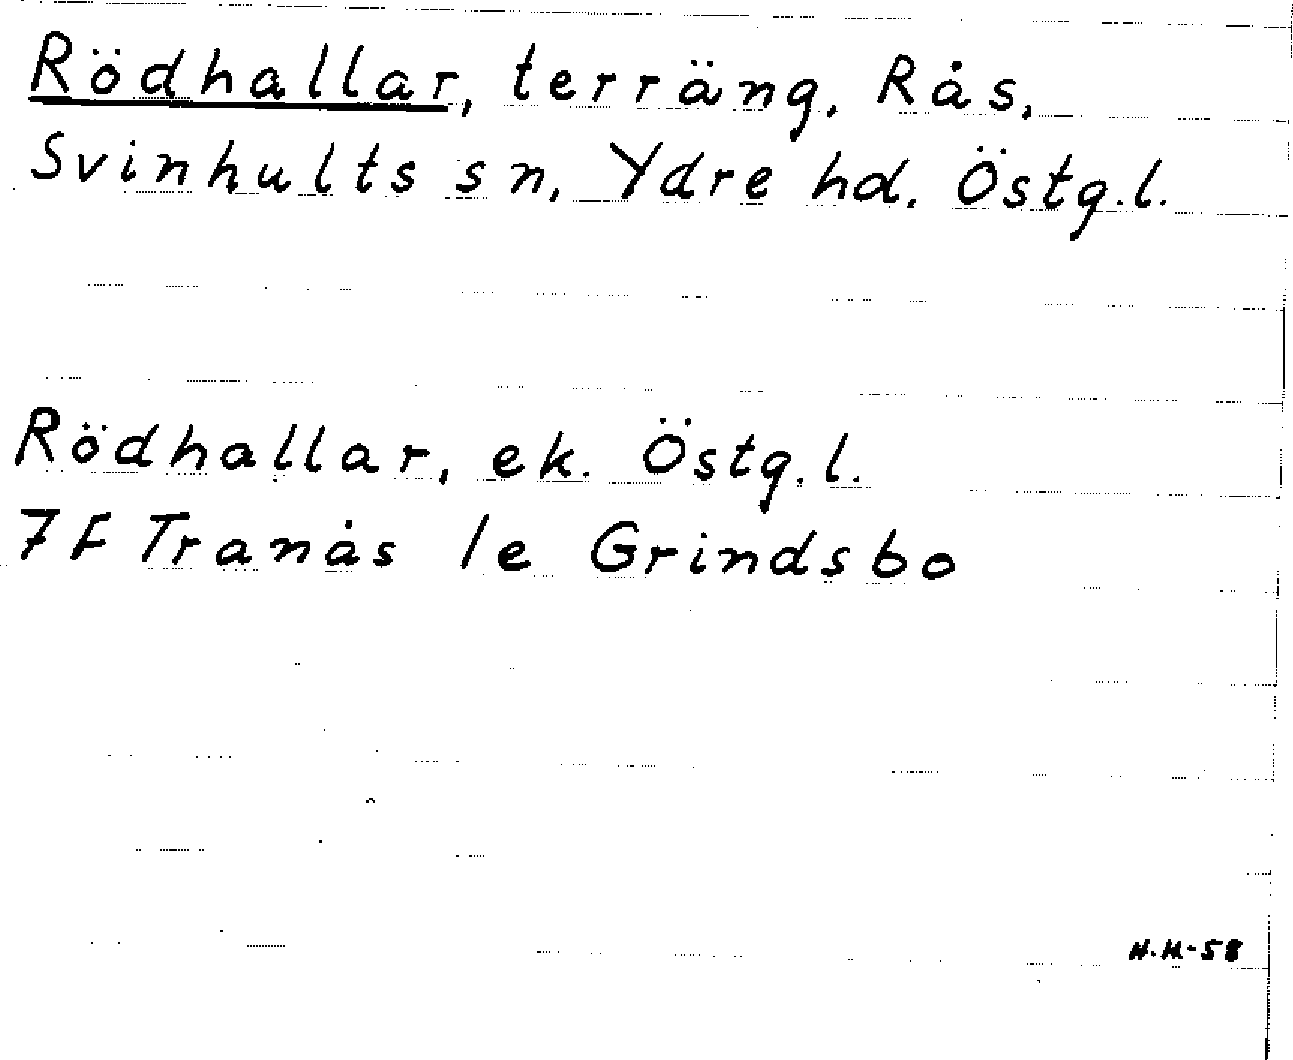 Rödhallar, terräng, Rås,
Svinhults sn, Ydre hd. Östg.l.
Rödhallar, ek. Östg.l.
7F Tranås 1e Grindsbo
H.H-58